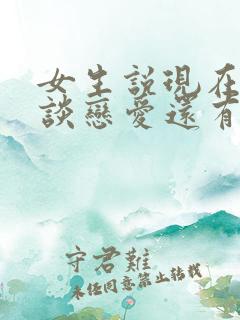 女生說現在
談戀愛還有
守君難
未经同意禁止转载